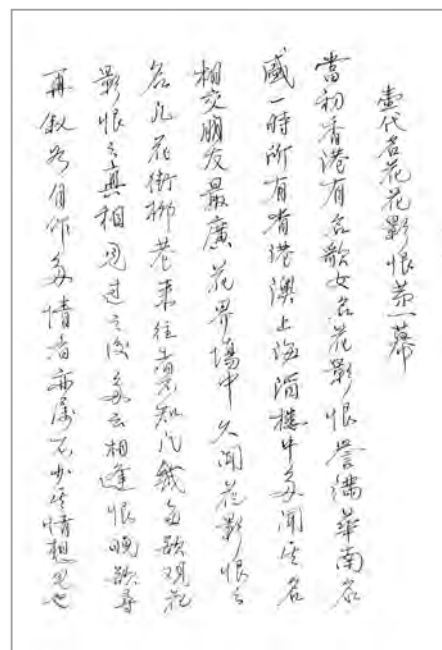 壹代名花花影恨苐一幕
當初香港有名歌女名花影恨譽滿華南名
盛一時所有省港澳上海酒楼中多聞其名
相交朋友最廣花界場中久聞花影恨之
名凡花街柳巷来往知凡多欲观花
影恨之真相见过之後多云相逢恨晚欲尋
再叙為自作多情者亦属不少其情想见也